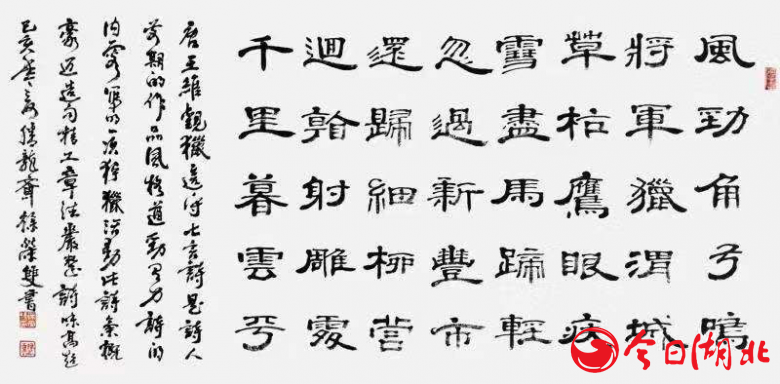 風勁角弓鳴
將軍獵渭城
草枯鷹眼疾
雪盡馬蹄輕
忽過新豐市
還歸細柳營
迴看射雕處
千里暮雲平
唐王維觀獵這首七言詩是詩人
前期的作品風格遒勁有力詩的
内容寫的一次狩獵活動此詩氣概
豪迈造句精工章法嚴整詩味高远
己亥年夏騰龍斋徐榮雙書
今日湖北